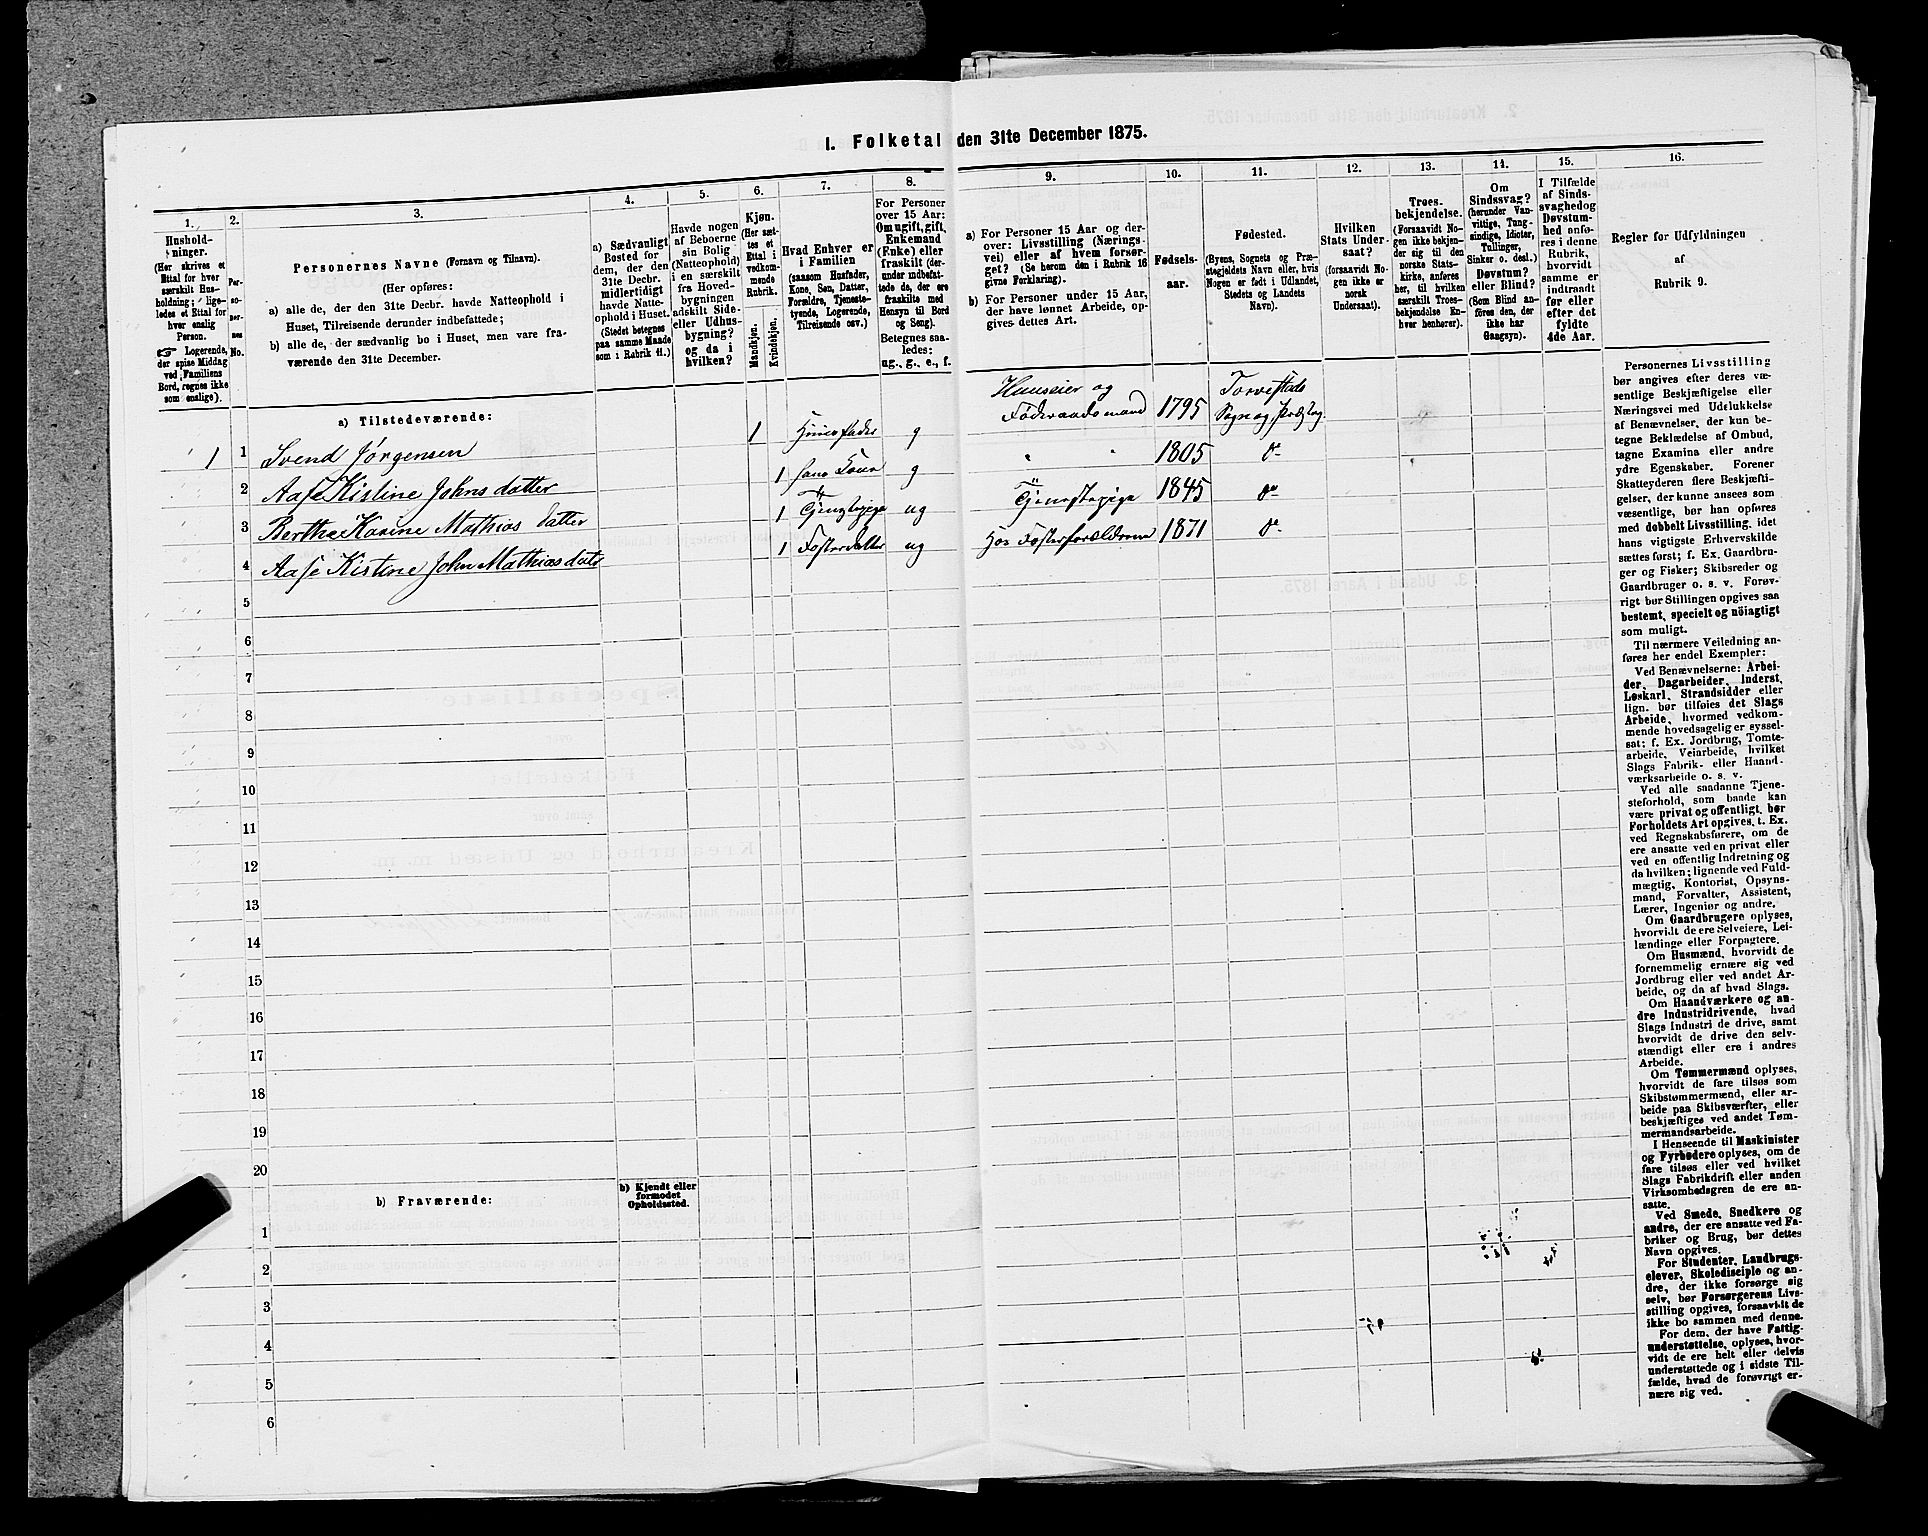 I. Folketal den 31te December 1875.
1.
2.
3.
4.
5.
6.
7.
8.
9.
10.
11.
12.
13.
14.
15.
16.
Hushold-
ninger.
(Her skrives et
Ettal for hver
særskilt Hus-
holdning; lige-
ledes et Ettal for
hver enslig
Person.
☞ Logerende,
der spise Middag
ved Familiens
Bord, regnes ikke
som enslige).
Per-
so-
ner-
nes
No.
Personernes Navne (Fornavn og Tilnavn).
(Her opføres:
a) alle de, der den 31te Decbr. havde Natteophold i
Huset, Tilreisende derunder indbefattede;
b) alle de, der sædvanlig bo i Huset, men vare fra-
værende den 31te December.
a) Sædvanligt
Bosted for
dem, der den
31te Decbr.
midlertidigt
havde Natte-
ophold i Huset.
(Stedet betegnes
paa samme Maade
som i Rubrik 11.)
Havde nogen
af Beboerne
sin Bolig
(Natteophold)
i en særskilt
fra Hoved-
bygningen
adskilt Side-
eller Udhus-
bygning?
og da i
hvilken?
Kjøn.
(Her sæt-
tes et
Ettal i
vedkom-
mende
Rubrik.
Mandkjøn.
Kvindekjøn.
Hvad Enhver er
i Familien
(saasom Husfader,
Kone, Søn, Datter,
Forældre, Tjeneste-
tyende, Logerende,
Tilreisende osv.)
For Personer
over 15 Aar:
Om ugift, gift,
Enkemand
(Enke) eller
fraskilt (der-
under indbefat-
tede de, der ere
fraskilte med
Hensyn til Bord
og Seng).
Betegnes saa-
ledes:
ug., g., e., f.
a) For Personer 15 Aar og der-
over: Livsstilling (Nærings-
vei) eller af hvem forsør-
get? (Se herom den i Rubrik 16
givne Forklaring).
b) For Personer under 15 Aar,
der have lønnet Arbeide, op-
gives dettes Art.
Fødsels-
aar.
Fødested.
(Byens, Sognets og Præ-
stegjeldets Navn eller, hvis
Nogen er født i Udlandet,
Stedets og Landets
Navn).
Hvilken
Stats Under-
saat?
(forsaavidt No-
gen ikke er
norsk
Undersaat).
Troes-
bekjendelse.
(Forsaavidt No-
gen ikke bekjen-
der sig til den
norske Stats-
kirke, anføres
her, til hvilken
særskilt Troes-
bekjendelse En-
hver henhører).
Om
Sindssvag?
(herunder Van-
vittige, Tung-
sindige, Idioter,
Tullinger,
Sinker o. desl.)
Døvstum?
eller Blind?
(Som Blind an-
føres den, der
ikke har
Gangsyn).
I Tilfælde
af Sinds-
svaghed og
Døvstum-
hed anfø-
res i denne
Rubrik,
hvorvidt
samme er
indtraadt
før eller
efter det
fyldte
4de Aar.
Regler for Udfyldningen
af
Rubrik 9.
a) Tilstedeværende:
1 1 Svend Jørgensen 1 Huusfader g Huuseier og
Føderaadsmand 1795 Torvestads
Sogn og Præsteg
2 Aase Kistine Johns datter 1 hans Kone g " " 1805 do
3 Berthe Karine Mathias datter 1 Tjenstepige ug Tjenestepige 1845 do
4 Aase Kistine John Mathiasdatr 1 Fosterdatter ug Hos Fosterforældrene 1871 do
5
6
7
8
9
10
11
12
13
14
15
16
17
18
19
20
b) Fraværende:
b) Kjendt eller
formodet
Opholdssted.
1
2
3
4
5
6
Personernes Livsstilling
bør angives efter deres væ-
sentlige Beskjæftigelse eller
Næringsvei med Udelukkelse
af Benævnelser, der kun be-
tegne Beklædelse af Ombud,
tagne Examina eller andre
ydre Egenskaber. Forener
Skatteyderen flere Beskjæfti-
gelser, der kunne ansees som
væsentlige, bør han opføres
med dobbelt Livsstilling, idet
hans vigtigste Erhvervskilde
sættes først; f. Ex. Gaardbru-
ger og Fisker; Skibsreder og
Gaardbruger o. s. v. Forøv-
rigt bør Stillingen opgives saa
bestemt, specielt og nöiagtigt
som muligt.
Til nærmere Veiledning an-
føres her endel Exempler:
Ved Benævnelserne: Arbei-
der, Dagarbeider, Inderst,
Løskarl, Strandsidder eller
lign. bør tilføies det Slags
Arbeide, hvormed vedkom-
mende hovedsagelig er syssel-
sat; f. Ex. Jordbrug, Tomte-
arbeide, Veiarbeide, hvilket
Slags Fabrik- eller Haand-
værksarbeide o. s. v.
Ved alle saadanne Tjene-
steforhold, som baade kan
være privat og offentligt, bør
Forholdets Art opgives, t. Ex.
ved Regnskabsførere, om de
ere ansatte ved en privat eller
ved en offentlig Indretning og
da hvilken; lignende ved Fuld-
mægtig, Kontorist, Opsyns-
mand, Forvalter, Assistent,
Lærer, Ingeniør og andre.
Om Gaardbrugere oplyses,
hvorvidt de ere Selveiere, Lei-
lændinge eller Forpagtere.
Om Husmænd, hvorvidt de
fornemmelig ernære sig ved
Jordbrug eller ved andet Ar-
beide, og da af hvad Slags.
Om Haandværkere og an-
dre Industridrivende, hvad
Slags Industri de drive, samt
hvorvidt de drive den selv-
stændigt eller ere i andres
Arbeide.
Om Tømmermænd oplyses,
hvorvidt de fare tilsøs som
Skibstømmermænd, eller ar-
beide paa Skibsværfter, eller
beskjæftiges ved andet Tøm-
mermandsarbeide.
I Henseende til Maskinister
og Fyrbødere oplyses, om de
fare tilsøs eller ved hvilket
Slags Fabrikdrift eller anden
Virksomhedsgren de ere an-
satte.
Ved Smede, Snedkere og
andre, der ere ansatte ved Fa-
briker og Brug, bør dettes
Navn opgives.
For Studenter, Landbrugs-
elever, Skoledisciple og an-
dre, der ikke forsørge sig
selv, bør Forsørgerens Livs-
stilling opgives, forsaavidt de
ikke bo sammen med denne.
For dem, der have Fattig-
understøttelse, oplyses, hvor-
vidt de ere helt eller delvis
understøttede og i sidste Til-
fælde, hvad de forøvrigt er-
nære sig ved.